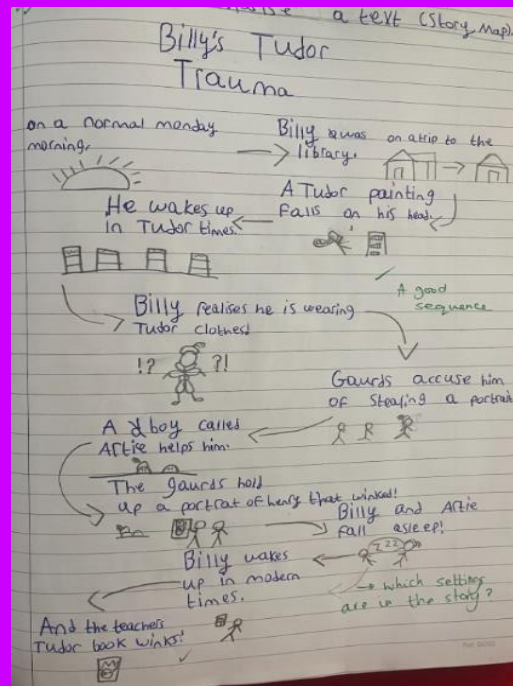 a text (Story Map).
Billy's Tudor
Trauma
on a normal monday
morning,
Billy was on a trip to the
library.
A Tudor painting
Falls on his head.
He wakes up
in Tudor times.
A good
sequence
Billy realises he is wearing
Tudor clothes!
!? ?!
Gaurds accuse him
of Stealing a portrait
A boy called
Artie helps him.
The gaurds hold
up a portrat of henry that winked!
Billy and Artie
fall asleep!
zzz
Billy wakes
up in modern
times.
→ which settings
are in the story?
And the teachers
Tudor book winks!